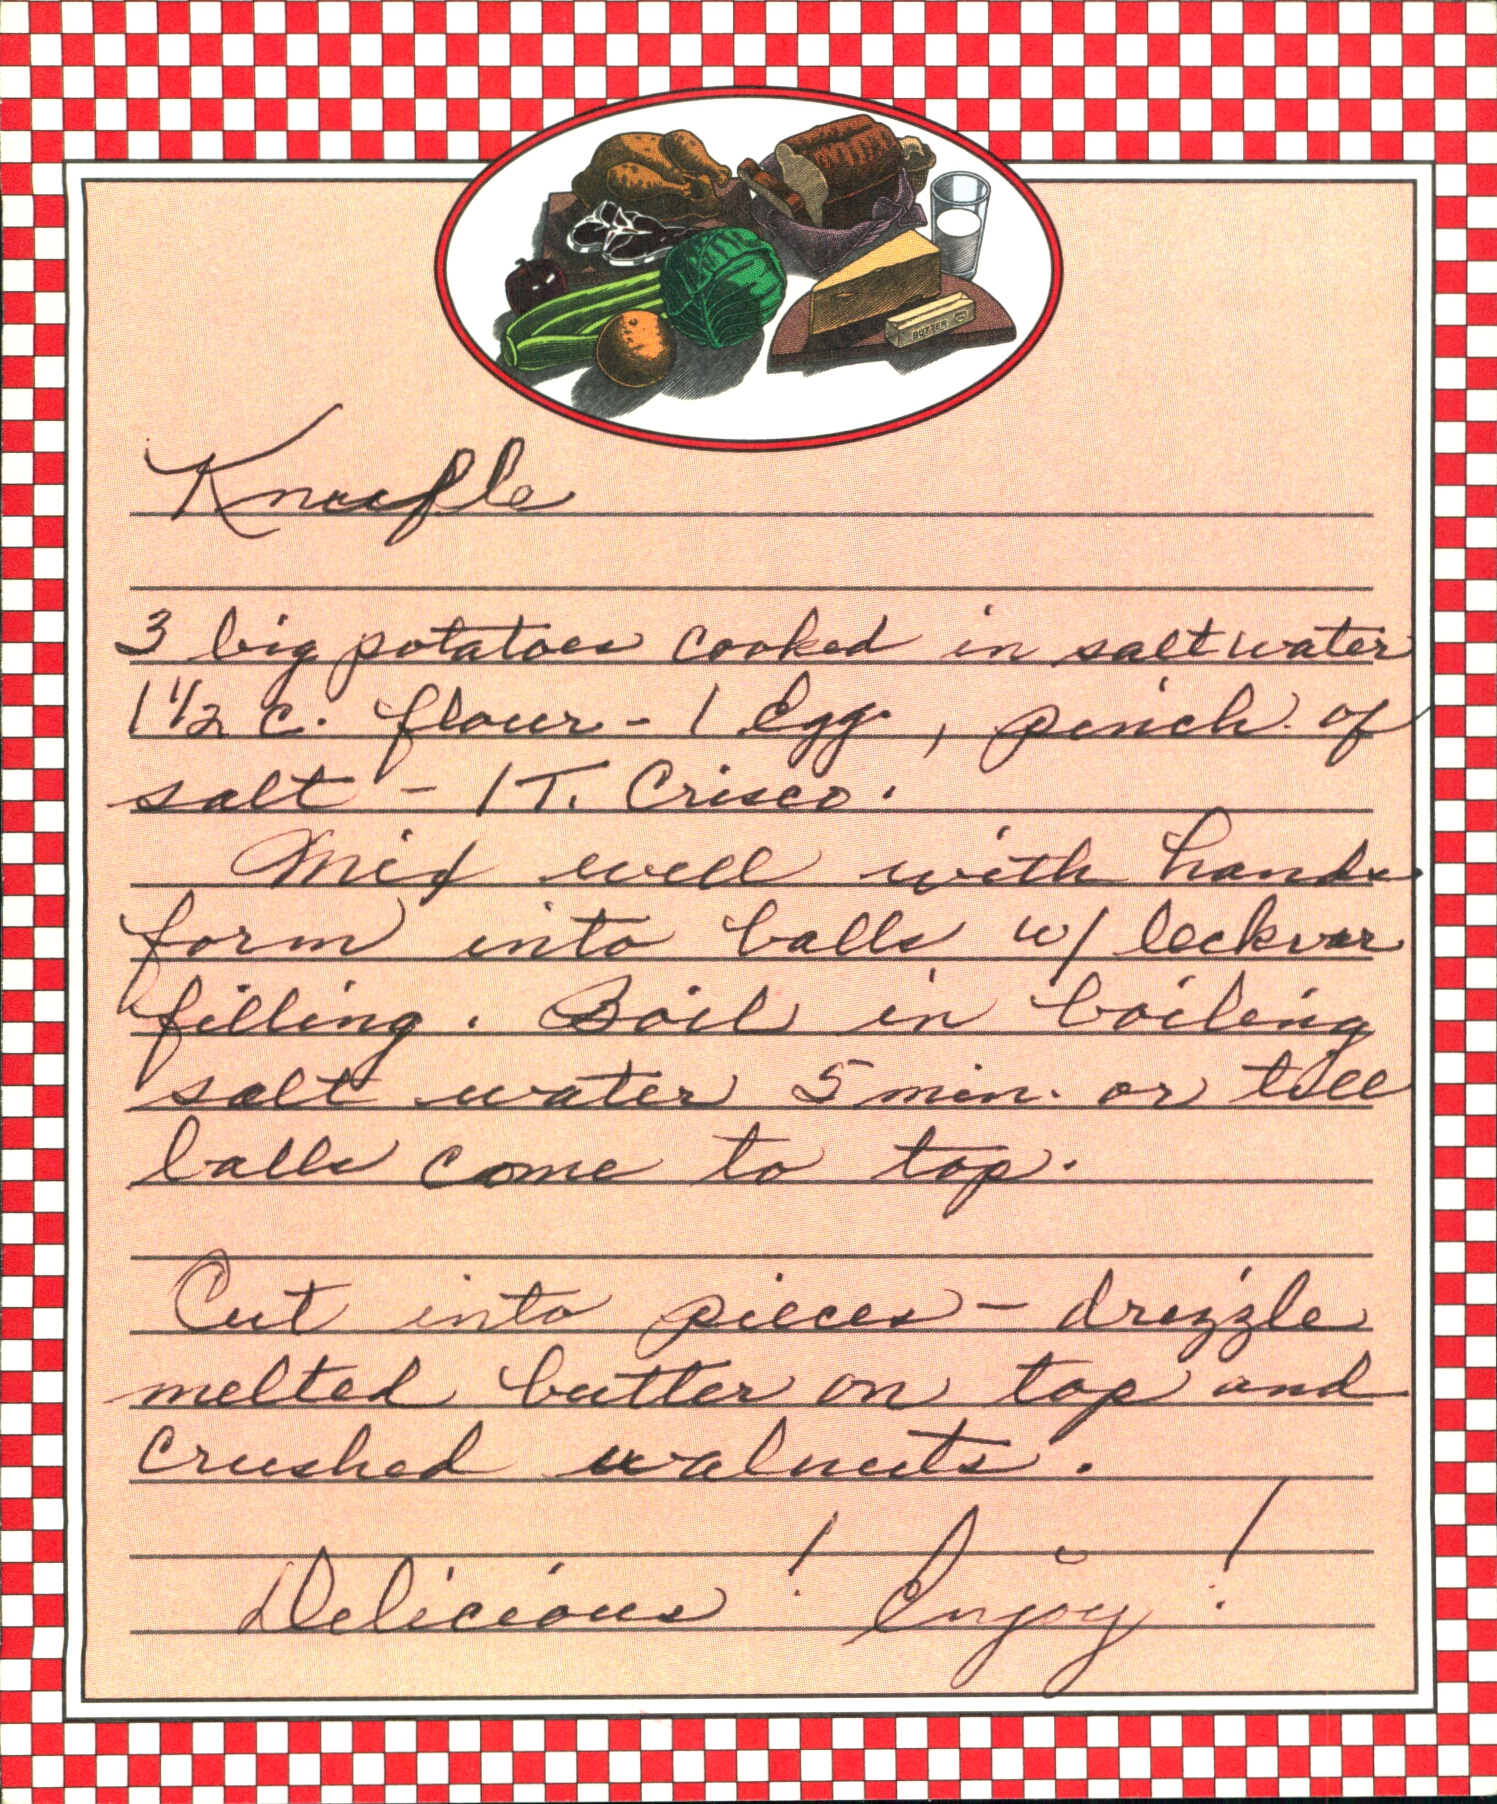 BUTTER
Knaefle
3 big potatoes cooked in salt water
1 1/2 c. flour - 1 Egg, pinch of
salt - 1 T. Crisco.
Mix well with hands
form into balls w/ leckvar
filling. Boil in boiling
salt water 5 min. or till
balls come to top.
Cut into pieces - drizzle
melted butter on top and
crushed walnuts.
Delicious! Enjoy!